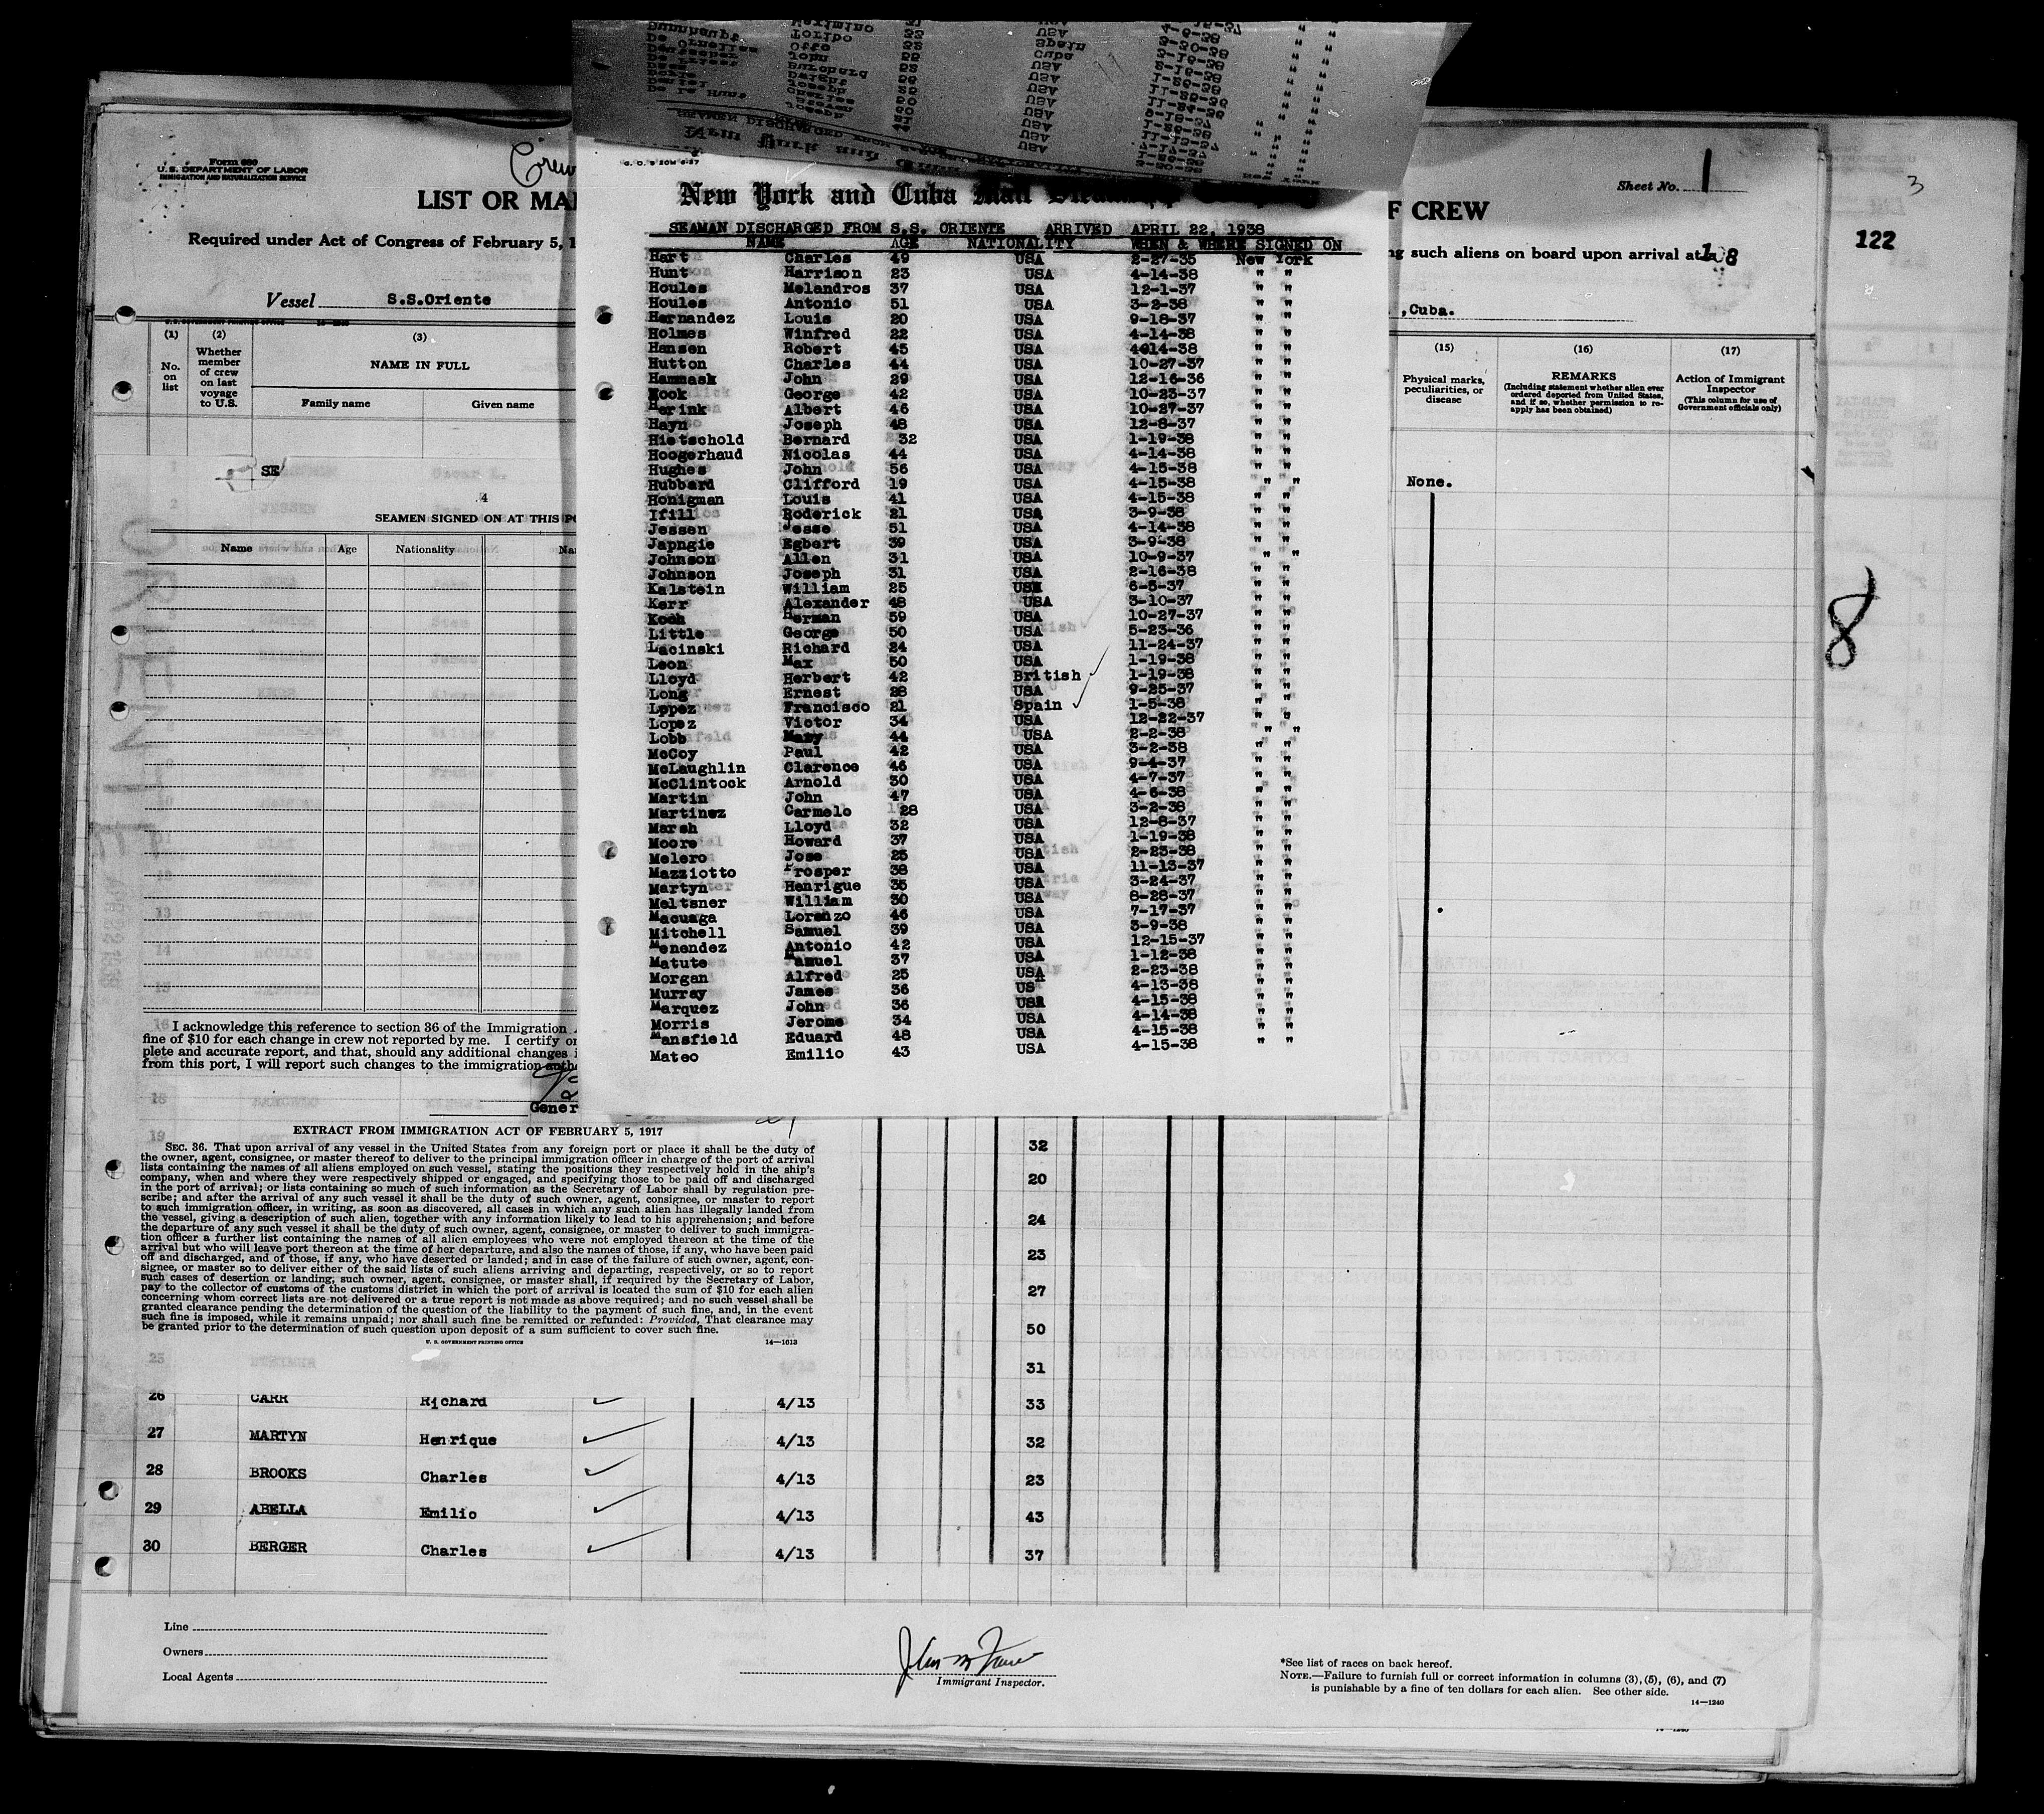 Form 680
U.S. DEPARTMENT OF LABOR
IMMIGRATION AND NATURALIZATION SERVICE
Crew
LIST OR MA
Required under Act of Congress of February 5, 1
Vessel S.S.Oriente
(1) (2) (3)
No. on list
Whether member of crew on last voyage to U.S.
NAME IN FULL
Family name Given name
SE
4
SEAMEN SIGNED ON AT THIS PO
Name Age Nationality Na
I acknowledge this reference to section 36 of the Immigration
fine of $10 for each change in crew not reported by me. I certify
plete and accurate report, and that, should any additional changes
from this port, I will report such changes to the immigration auth
Gener
G. O. 9 20M 6-37
New York and Cuba Mail
SEAMAN DISCHARGED FROM S.S. ORIENTE ARRIVED APRIL 22, 1938
NAME AGE NATIONALITY WHEN & WHERE SIGNED ON
Hart Charles 49 USA 2-27-35 New York
Hunt Harrison 23 USA 4-14-38 " "
Houles Melandros 37 USA 12-1-37 " "
Houles Antonio 51 USA 3-2-38 " "
Hernandez Louis 20 USA 9-18-37 " "
Holmes Winfred 22 USA 4-14-38 " "
Hansen Robert 45 USA 4-14-38 " "
Hutton Charles 44 USA 10-27-37 " "
Hammask John 29 USA 12-16-36 " "
Hook George 42 USA 10-23-37 " "
Herink Albert 46 USA 10-27-37 " "
Hayn Joseph 48 USA 12-8-37 " "
Hietschold Bernard 32 USA 1-19-38 " "
Hoogerhaud Nicolas 44 USA 4-14-38 " "
Hughes John 56 USA 4-15-38 " "
Hubbard Clifford 19 USA 4-15-38 " "
Honigman Louis 41 USA 4-15-38 " "
Ifill Roderick 21 USA 3-9-38 " "
Jessen Jesse 51 USA 4-14-38 " "
Japngie Egbert 39 USA 3-9-38 " "
Johnson Allen 31 USA 10-9-37 " "
Johnson Joseph 31 USA 2-16-38 " "
Kalstein William 25 USA 6-5-37 " "
Kerr Alexander 48 USA 3-10-37 " "
Koch Herman 59 USA 10-27-37 " "
Little George 50 USA 5-23-36 " "
Lacinski Richard 24 USA 11-24-37 " "
Leon Max 50 USA 1-19-38 " "
Lloyd Herbert 42 British 1-19-38 " "
Long Ernest 28 USA 9-25-37 " "
Lppez Francisco 21 Spain 1-5-38 " "
Lopez Victor 34 USA 12-22-37 " "
Lobb Mary 44 USA 2-2-38 " "
McCoy Paul 42 USA 3-2-38 " "
McLaughlin Clarence 46 USA 9-4-37 " "
McClintock Arnold 30 USA 4-7-37 " "
Martin John 47 USA 4-6-38 " "
Martinez Carmelo 28 USA 3-2-38 " "
Marsh Lloyd 32 USA 12-8-37 " "
Moore Howard 37 USA 1-19-38 " "
Melero Jose 25 USA 2-23-38 " "
Mazziotto Prosper 38 USA 11-13-37 " "
Martyn Henrigue 35 USA 3-24-37 " "
Meltsner William 30 USA 8-28-37 " "
Macuaga Lorenzo 46 USA 7-17-37 " "
Mitchell Samuel 39 USA 3-9-38 " "
Menendez Antonio 42 USA 12-15-37 " "
Matute Manuel 37 USA 1-12-38 " "
Morgan Alfred 25 USA 2-23-38 " "
Murray James 36 USA 4-13-38 " "
Marquez John 36 USA 4-15-38 " "
Morris Jerome 34 USA 4-14-38 " "
Mansfield Eduard 48 USA 4-15-38 " "
Mateo Emilio 43 USA 4-15-38 " "
Sheet No. 1
F CREW
such aliens on board upon arrival at
,Cuba.
(15) (16) (17)
Physical marks, peculiarities, or disease
REMARKS
(Including statement whether alien ever ordered deported from United States, and if so, whether permission to re-apply has been obtained)
Action of Immigrant Inspector
(This column for use of Government officials only)
None.
3
122
8
EXTRACT FROM IMMIGRATION ACT OF FEBRUARY 5, 1917
SEC. 36. That upon arrival of any vessel in the United States from any foreign port or place it shall be the duty of
the owner, agent, consignee, or master thereof to deliver to the principal immigration officer in charge of the port of arrival
lists containing the names of all aliens employed on such vessel, stating the positions they respectively hold in the ship's
company, when and where they were respectively shipped or engaged, and specifying those to be paid off and discharged
in the port of arrival; or lists containing so much of such information as the Secretary of Labor shall by regulation pre-
scribe; and after the arrival of any such vessel it shall be the duty of such owner, agent, consignee, or master to report
to such immigration officer, in writing, as soon as discovered, all cases in which any such alien has illegally landed from
the vessel, giving a description of such alien, together with any information likely to lead to his apprehension; and before
the departure of any such vessel it shall be the duty of such owner, agent, consignee, or master to deliver to such immigra-
tion officer a further list containing the names of all alien employees who were not employed thereon at the time of the
arrival but who will leave port thereon at the time of her departure, and also the names of those, if any, who have been paid
off and discharged, and of those, if any, who have deserted or landed; and in case of the failure of such owner, agent, con-
signee, or master so to deliver either of the said lists of such aliens arriving and departing, respectively, or so to report
such cases of desertion or landing, such owner, agent, consignee, or master shall, if required by the Secretary of Labor,
pay to the collector of customs of the customs district in which the port of arrival is located the sum of $10 for each alien
concerning whom correct lists are not delivered or a true report is not made as above required; and no such vessel shall be
granted clearance pending the determination of the question of the liability to the payment of such fine, and, in the event
such fine is imposed, while it remains unpaid; nor shall such fine be remitted or refunded: Provided, That clearance may
be granted prior to the determination of such question upon deposit of a sum sufficient to cover such fine.
U. S. GOVERNMENT PRINTING OFFICE 14—1613
32
20
24
23
27
50
31
26 CARR Richard 4/13 33
27 MARTYN Henrique 4/13 32
28 BROOKS Charles 4/13 23
29 ABELLA Emilio 4/13 43
30 BERGER Charles 4/13 37
Line
Owners
Local Agents
Immigrant Inspector.
*See list of races on back hereof.
NOTE.—Failure to furnish full or correct information in columns (3), (5), (6), and (7)
is punishable by a fine of ten dollars for each alien. See other side.
14—1240